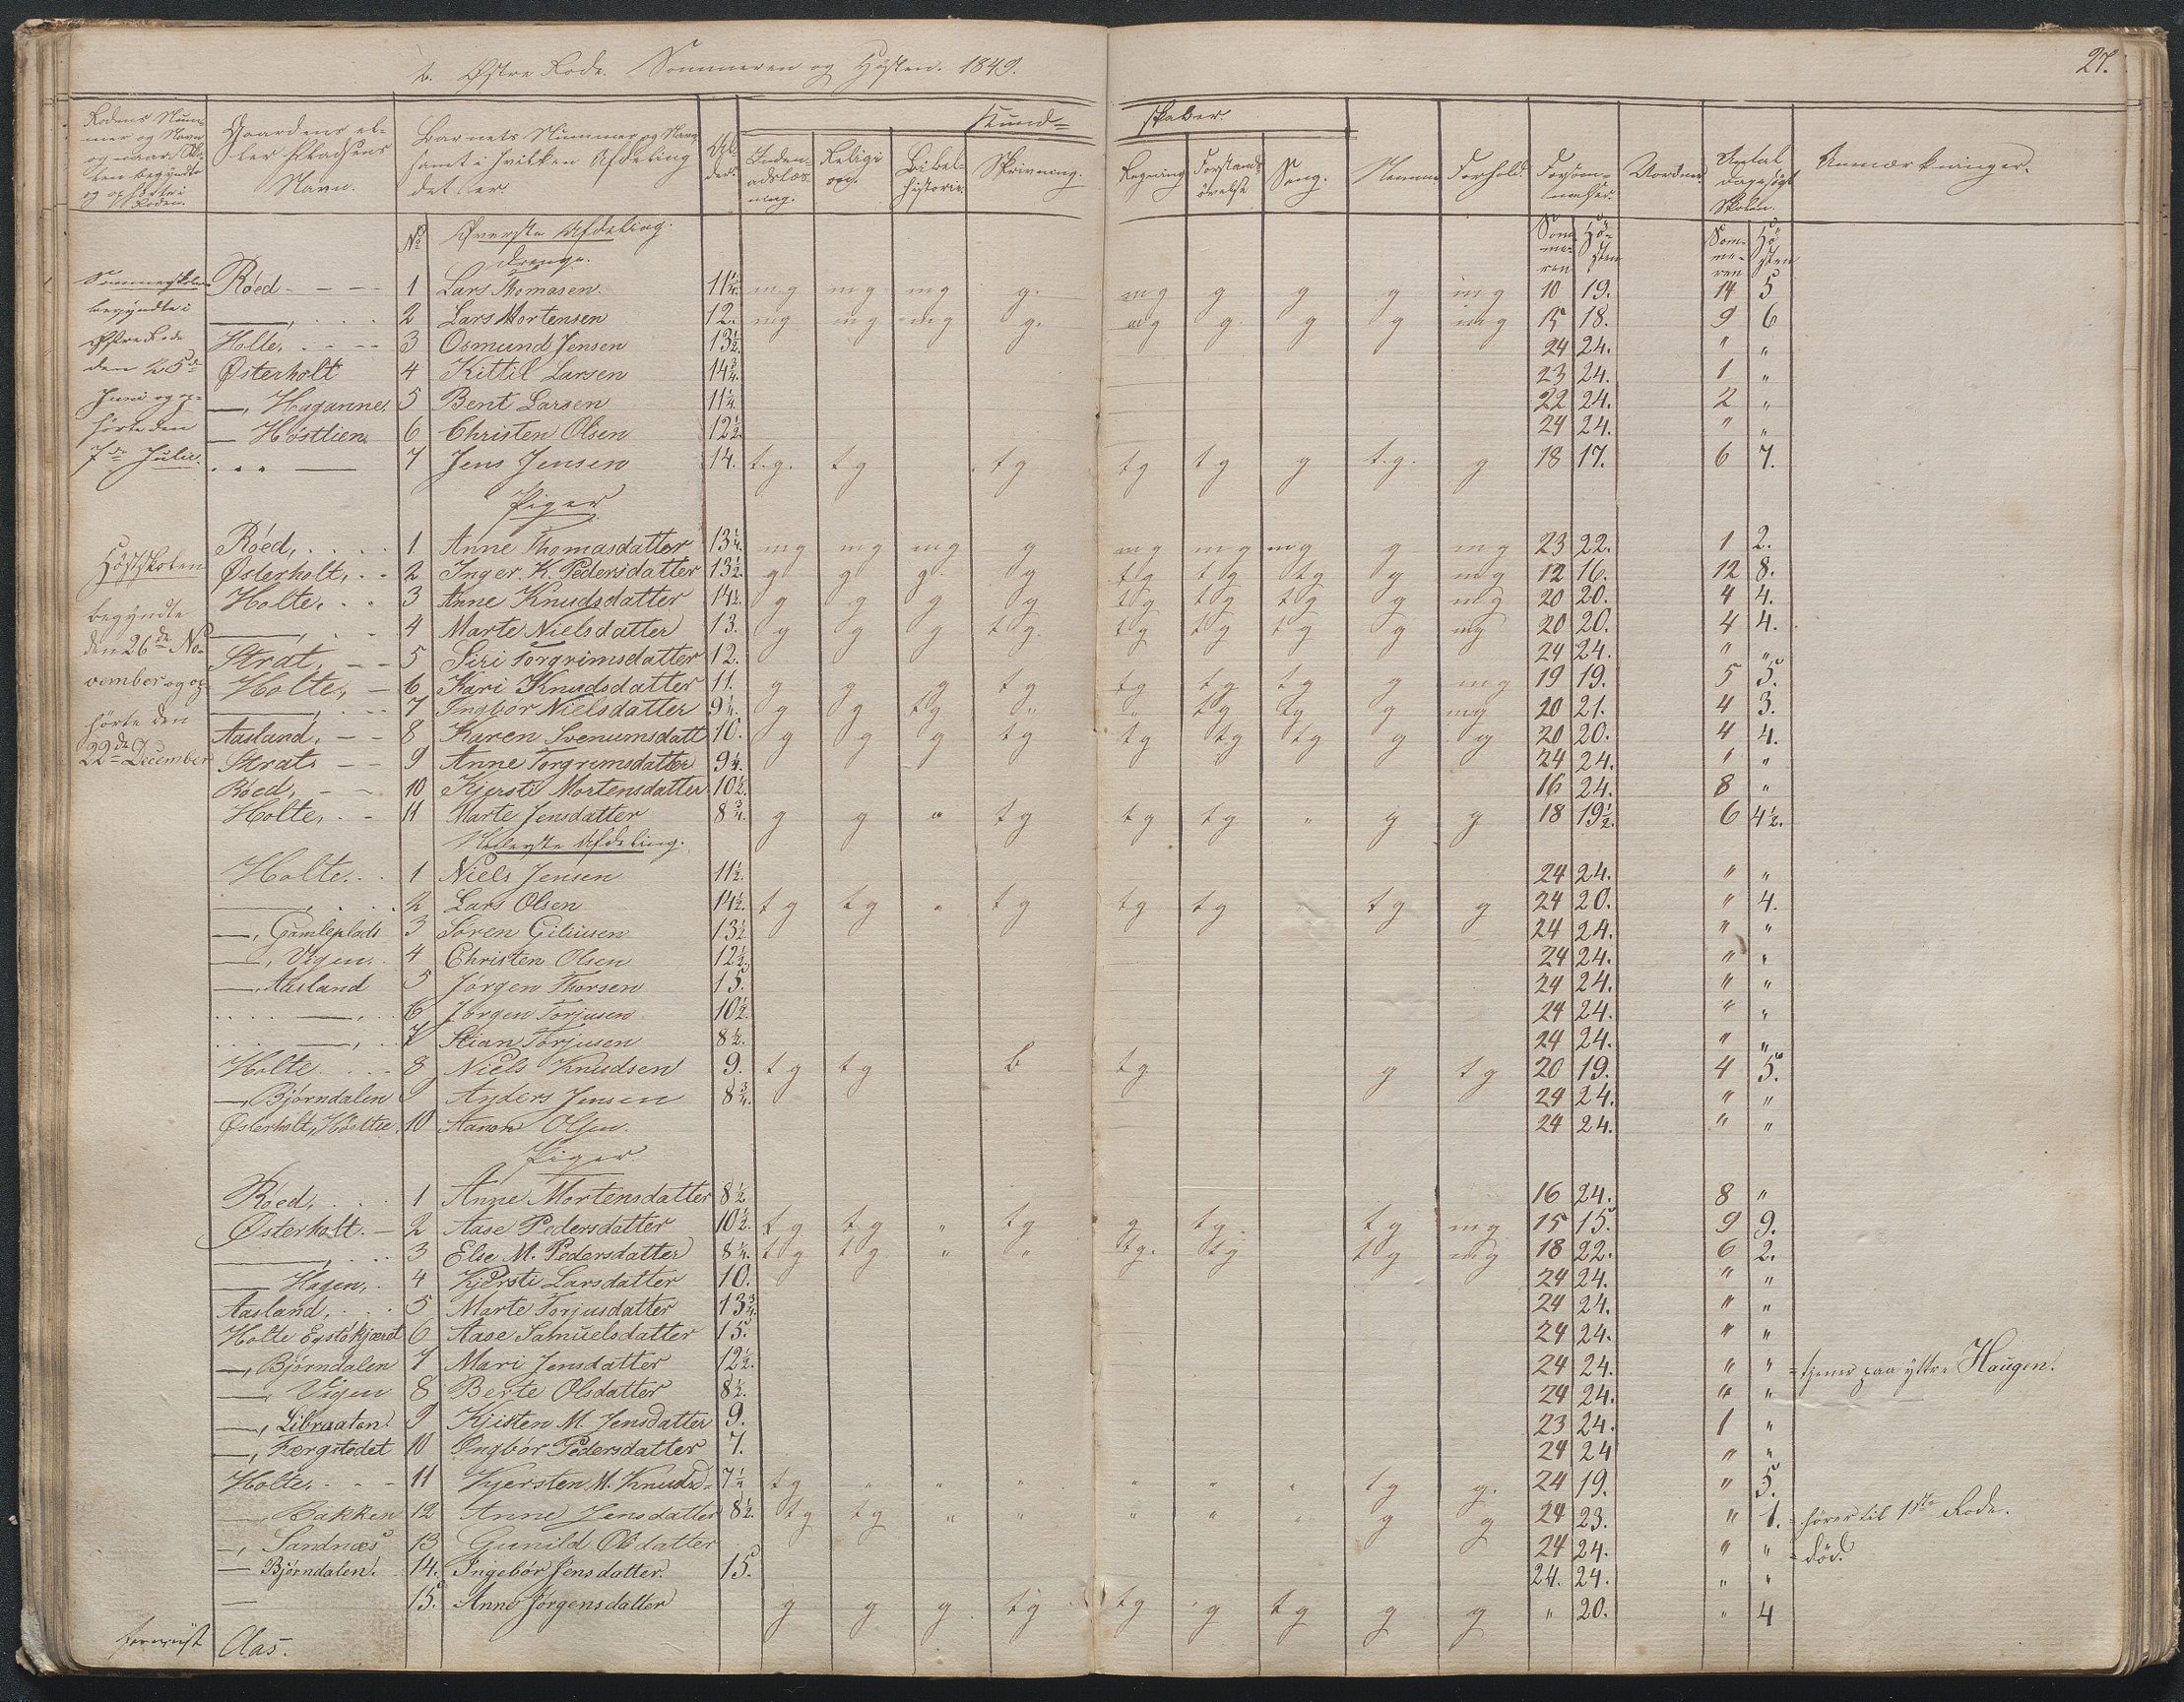 2. Østre Rode. Sommeren og Høsten. 1849.
27.
Rodens Nummer og Navn og naar Skolen begyndte og ophørte i Roden.
Gaardens eller Pladsens Navn.
Barnets Nummer og Navn samt i hvilken Afdeling det er
Alder.
Kundskaber.
Indenadslæsning.
Religion.
Bibelhistorie.
Skrivning.
Regning
Forstandsøvelse
Sang.
Nemme
Forhold.
Forsømmelser.
Antal Dage søgt Skolen.
Anmærkninger.
No Øverste Afdeling. Sommeren Høsten Sommeren Høsten
Drenge.
Sommerskolen begyndte i Østre Rode den 25de Juni og ophørte den 7de Julii.
Røed 1 Lars Thomasen 11¼. mg mg mg g. mg g g g mg 10 19. 14 5
—, 2 Lars Mortensen 12. mg mg mg g. mg g g g mg 15 18. 9 6
Holte, 3 Osmund Jensen 13½. 24 24. " "
Østerholt 4 Kittil Larsen 14¾. 23 24. 1 "
—, Haganne, 5 Bent Larsen 11¼ 22 24. 2 "
— Høstlien 6 Christen Olsen 12½. 24 24. " "
— 7 Jens Jensen 14. t.g. tg tg tg tg g t.g. g 18 17. 6 7.
Piger
Høstskolen begyndte den 26de November og ophørte den 22de December
Røed, 1 Anne Thomasdatter 13¼. mg mg mg g mg mg mg g mg 23 22. 1 2.
Østerholt, 2 Inger. K. Pedersdatter 13½. g g g g tg tg tg g mg 12 16. 12 8.
Holte. 3 Anne Knudsdatter 14½. g g g g tg tg tg g mg 20 20. 4 4.
—, 4 Marte Nielsdatter 13. g g g tg tg tg tg g mg 20 20. 4 4.
Strat, 5 Siri Torgrimsdatter 12. 24 24. " "
Holte, 6 Kari Knudsdatter 11. g g g tg tg tg tg g mg 19 19. 5 5.
—, 7 Ingbor Nielsdatter 9¼. g g tg " " tg tg g mg 20 21. 4 3.
Aasland, 8 Karen Svenumsdatt 10. g g g tg tg tg tg g g 20 20. 4 4.
Strat. 9 Anne Torgrimsdatter 9¼. 24 24. " "
Røed, 10 Kjersti Mortensdatter 10½. 16 24. 8 "
Holte, 11 Marte Jensdatter 8¾. g g " tg tg tg " g g 18 19½. 6 4½.
Nederste Afdeling.
Holte. 1 Niels Jensen 11½. 24 24. " "
—, 2 Lars Olsen 14½. tg tg " tg tg tg tg g 24 20. " 4.
—, Gamleplads 3 Søren 13½ 24 24. " "
—, Vigen. 4 Christen Olsen 12½. 24 24. " "
—, Aasland 5 Jørgen Thorsen 15. 24 24. " "
—, 6 Jørgen Torjusen 10½. 24 24. " "
—, 7 Stian Torjusen 8½. 24 24. " "
Holte 8 Niels Knudsen 9. tg tg b tg g tg 20 19. 4 5.
—, Bjørndalen 9 Anders Jensen 8¾. 24 24. " "
Østerholt, 10 Aanon Olsen. 24 24. " "
Piger.
Røed, 1 Anne Mortensdatter 8½ 16 24. 8 "
Østerholt. 2 Aase Pedersdatter 10½. tg tg " tg g tg tg mg 15 15. 9 9.
—, 3 Else M. Pedersdatter 8¼. tg tg " " tg. tg tg mg 18 22. 6 2.
— Hagen, 4 Kjersti Larsdatter 10. 24 24. " "
Aasland, 5 Marte Torjusdatter 13¾. 24 24. " "
Holte 6 Aase Samuelsdatter 15. 24 24. " "
—, Bjørndalen 7 Mari Jensdatter 12½. 24 24. " " = tjener paa yttre Haugen.
—, Vigen 8 Berte Olsdatter 8½. 24 24. " "
—, Libraaten. 9 Kjisten M. Jensdatter 9. 23 24. 1 "
—, Færgstedet 10 Ingbør Pedersdatter 7. 24 24 " "
Holte, 11 Kjersten M. Knuds- 7¼ tg " " " " " " tg g. 24 19. " 5.
—, Bakken 12 Anne Jensdatter 8½. tg tg " " " " " g g 24 23. " 1. = hører til 1ste Rode.
—, Sandnæs 13 Gunild Olsdatter 24 24. " " = död.
— Bjørndalen. 14. Ingebør Jensdatter. 15. 24. 24. " "
— 15. Anne Jørgensdatter g g g tg tg g tg g g " 20. " 4
Olas.